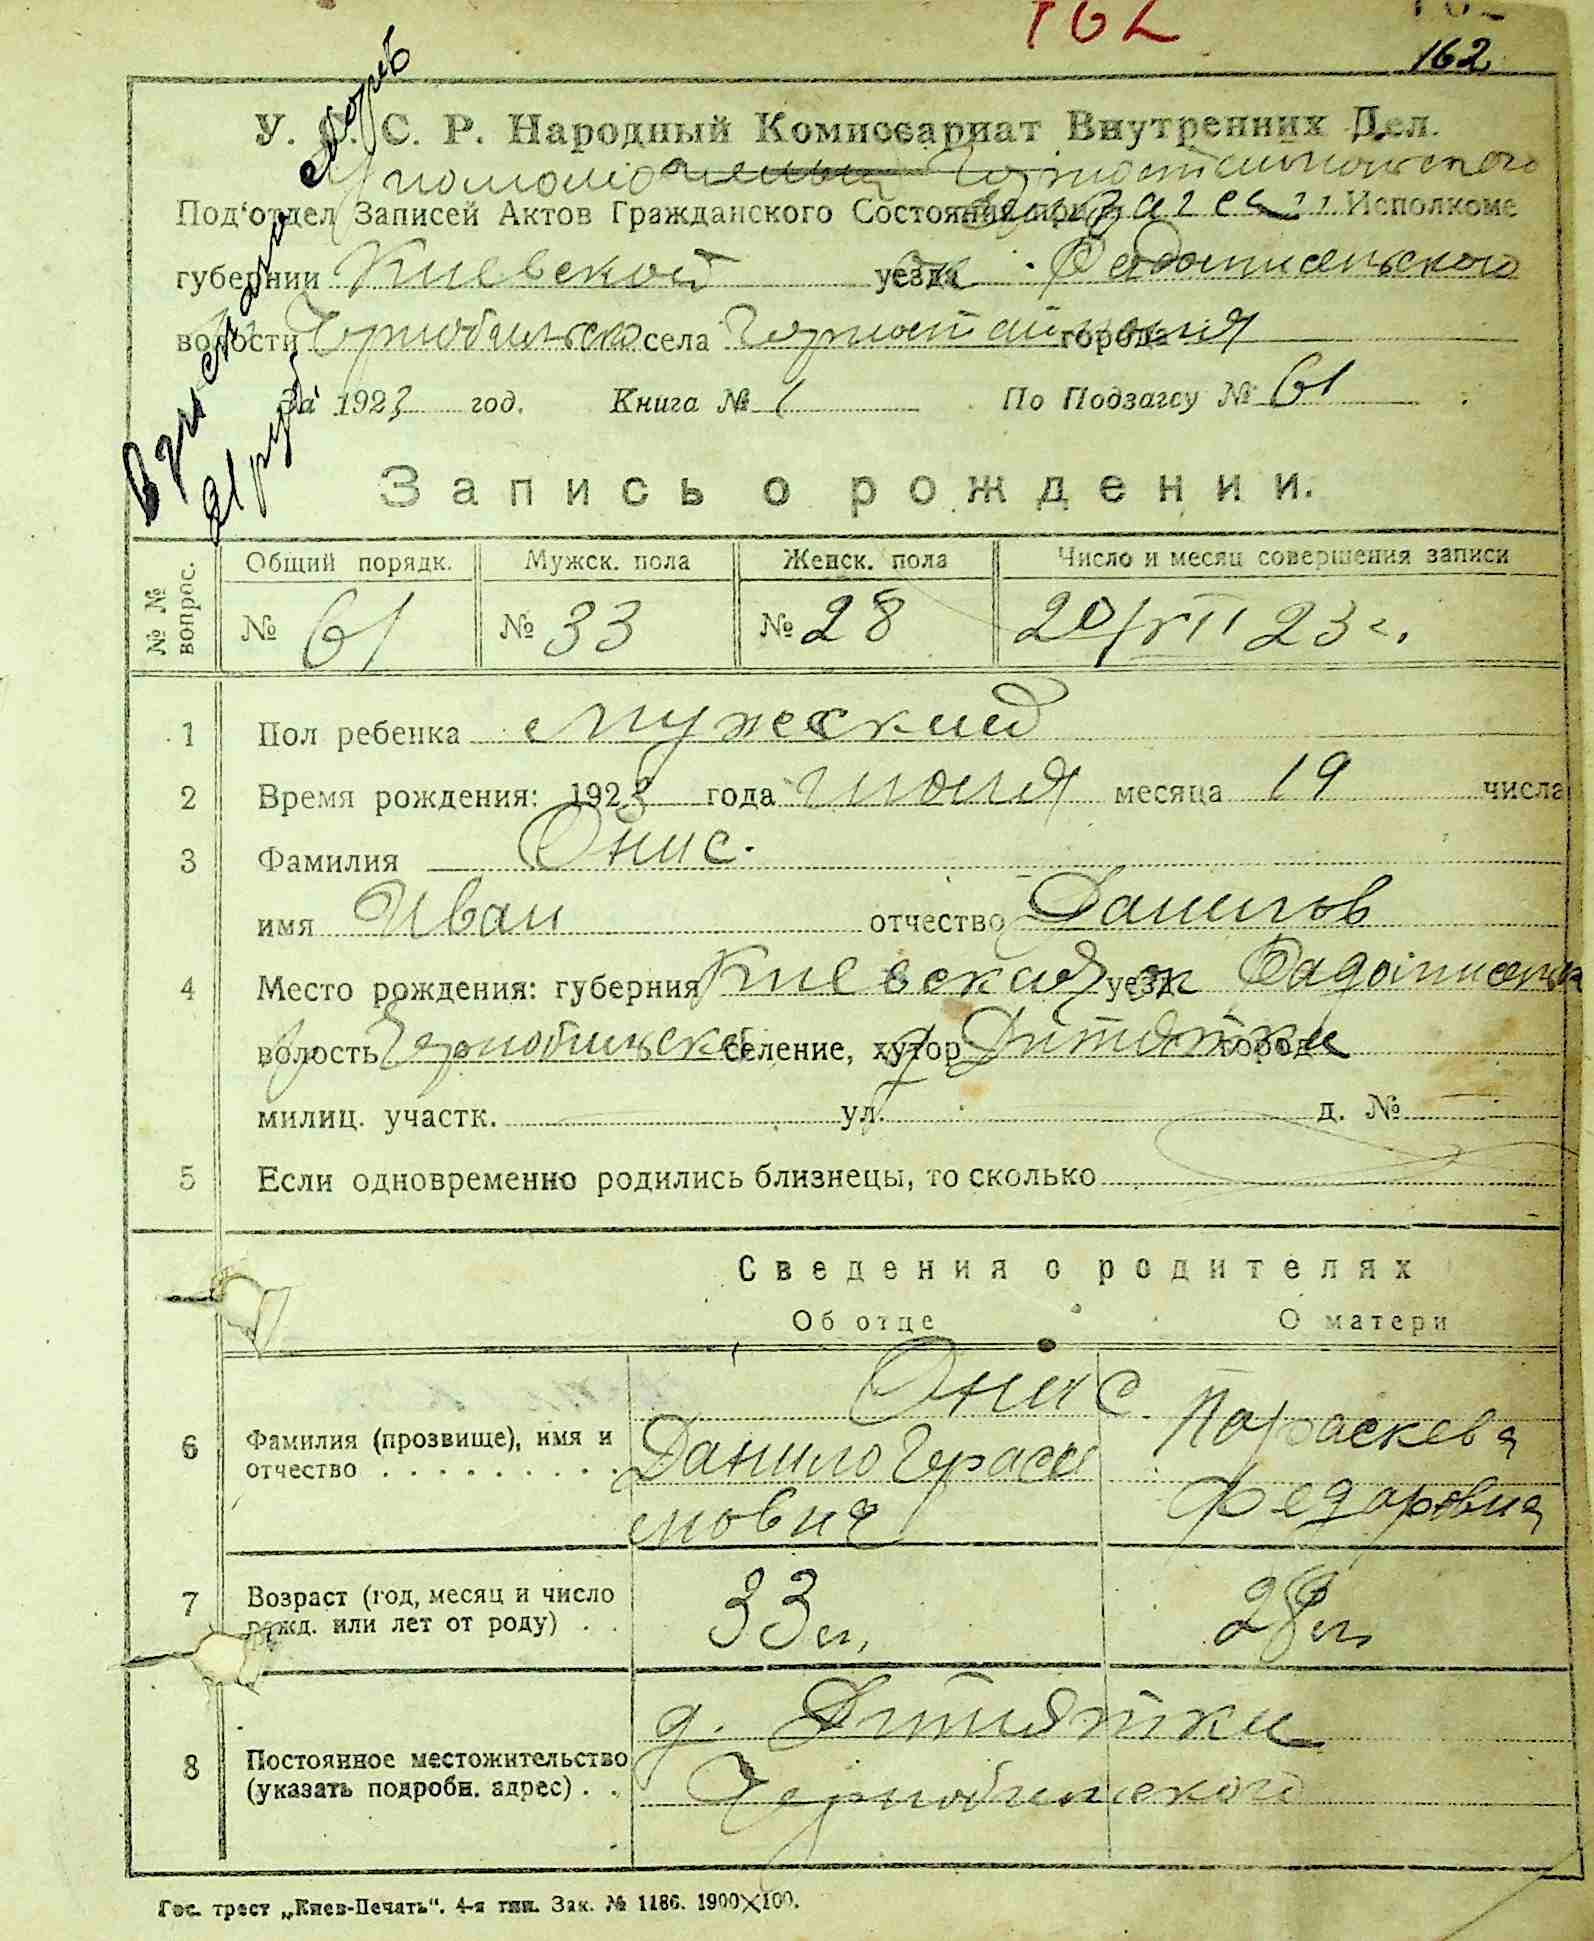 162
162
У. С. С. Р. Народный Комиссариат Внутренних Дел.
Горностайпольского
Под'отдел Записей Актов Гражданского Состояния при загсе Исполкоме
губернии Киевской уезда ок. Радомисельского
волости Чернобильско села Горностайполя города
За 1923 год. Книга № 1 По Подзагсу № 61
Запись о рождении.
№ № вопрос. Общий порядк. Мужск. пола Женск. пола Число и месяц совершения записи
№ 61 № 33 № 28 20/VII 23 г.
1 Пол ребенка Мужеский
2 Время рождения: 1923 года июля месяца 19 числа
3 Фамилия Онис.
имя Иван отчество Данилов
4 Место рождения: губерния Киевская уезд ок Радомисельск
волость Чернобильска селение, хутор д Дитятки город
милиц. участк. ул. д. №
5 Если одновременно родились близнецы, то сколько
Сведения о родителях
Об отце О матери
Онис
6 Фамилия (прозвище), имя и отчество Данило Гераси
мович
Параскева
Федоровна
7 Возраст (год, месяц и число рожд. или лет от роду) 33 л, 28 л
8 Постоянное местожительство (указать подробн. адрес) д. Дитятки
Чернобильского
Гос. трест „Киев-Печать“. 4-я тип. Зак. № 1186. 1900×100.